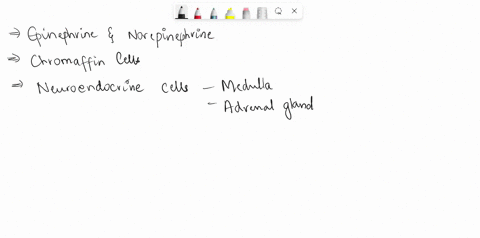 ⇒ Epinephrine & Norepinephrine
⇒ Chromaffin Cells
⇒ Neuroendocrine cells – Medulla
– Adrenal gland